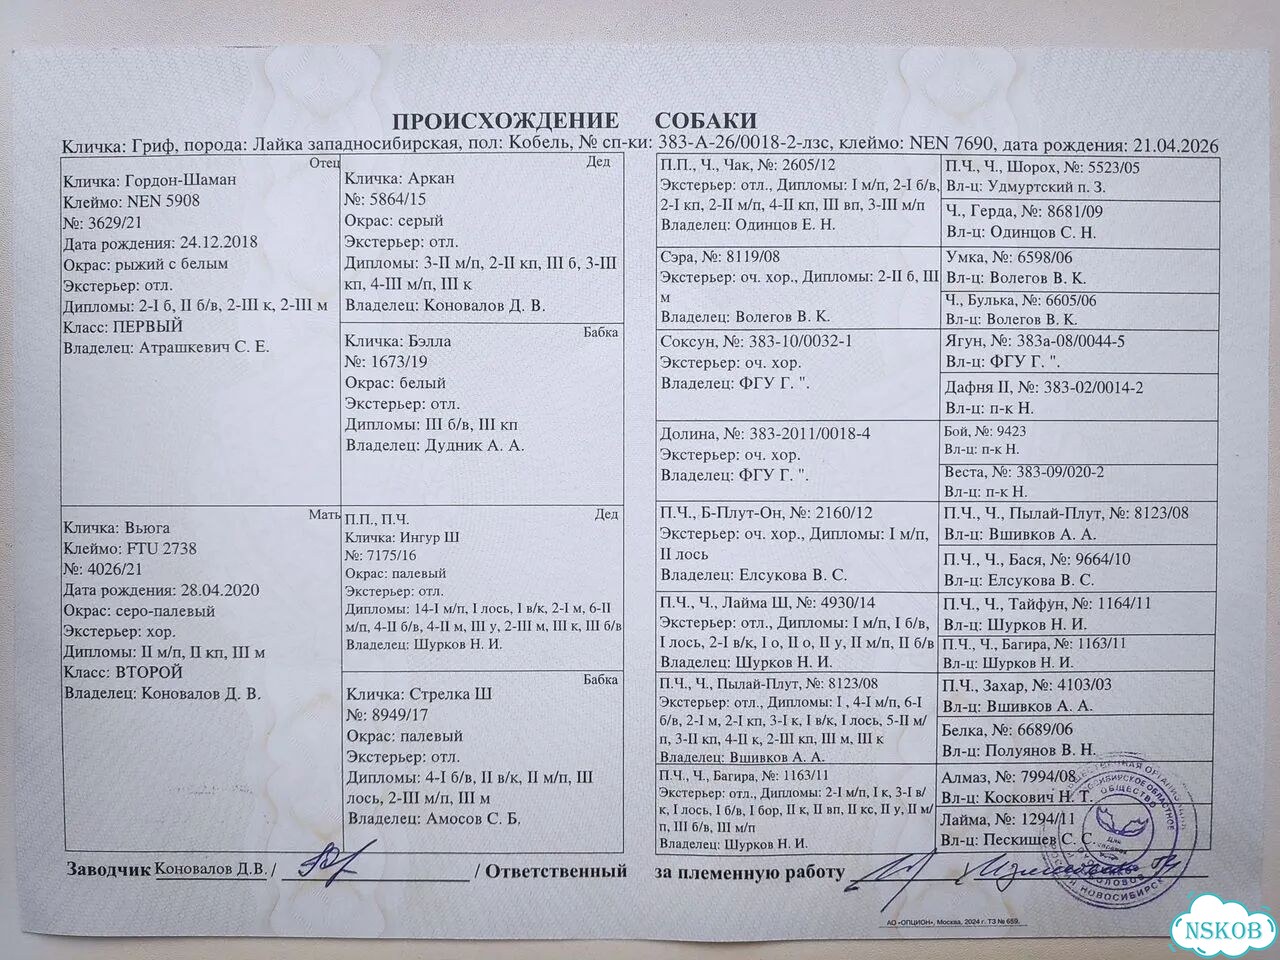 ПРОИСХОЖДЕНИЕ СОБАКИ
Кличка: Гриф, порода: Лайка западносибирская, пол: Кобель, № сп-ки: 383-А-26/0018-2-лзс, клеймо: NEN 7690, дата рождения: 21.04.2026
Отец
Кличка: Гордон-Шаман
Клеймо: NEN 5908
№: 3629/21
Дата рождения: 24.12.2018
Окрас: рыжий с белым
Экстерьер: отл.
Дипломы: 2-I б, II б/в, 2-III к, 2-III м
Класс: ПЕРВЫЙ
Владелец: Атрашкевич С. Е.
Мать
Кличка: Вьюга
Клеймо: FTU 2738
№: 4026/21
Дата рождения: 28.04.2020
Окрас: серо-палевый
Экстерьер: хор.
Дипломы: II м/п, II кп, III м
Класс: ВТОРОЙ
Владелец: Коновалов Д. В.
Дед
Кличка: Аркан
№: 5864/15
Окрас: серый
Экстерьер: отл.
Дипломы: 3-II м/п, 2-II кп, III б, 3-III
кп, 4-III м/п, III к
Владелец: Коновалов Д. В.
Бабка
Кличка: Бэлла
№: 1673/19
Окрас: белый
Экстерьер: отл.
Дипломы: III б/в, III кп
Владелец: Дудник А. А.
Дед
П.П., П.Ч.
Кличка: Ингур Ш
№: 7175/16
Окрас: палевый
Экстерьер: отл.
Дипломы: 14-I м/п, I лось, I в/к, 2-I м, 6-II
м/п, 4-II б/в, 4-II м, III у, 2-III м, III к, III б/в
Владелец: Шурков Н. И.
Бабка
Кличка: Стрелка Ш
№: 8949/17
Окрас: палевый
Экстерьер: отл.
Дипломы: 4-I б/в, II в/к, II м/п, III
лось, 2-III м/п, III м
Владелец: Амосов С. Б.
П.П., Ч., Чак, №: 2605/12
Экстерьер: отл., Дипломы: I м/п, 2-I б/в,
2-I кп, 2-II м/п, 4-II кп, III вп, 3-III м/п
Владелец: Одинцов Е. Н.
Сэра, №: 8119/08
Экстерьер: оч. хор., Дипломы: 2-II б, III
м
Владелец: Волегов В. К.
Соксун, №: 383-10/0032-1
Экстерьер: оч. хор.
Владелец: ФГУ Г. ".
Долина, №: 383-2011/0018-4
Экстерьер: оч. хор.
Владелец: ФГУ Г. ".
П.Ч., Б-Плут-Он, №: 2160/12
Экстерьер: оч. хор., Дипломы: I м/п,
II лось
Владелец: Елсукова В. С.
П.Ч., Ч., Лайма Ш, №: 4930/14
Экстерьер: отл., Дипломы: I м/п, I б/в,
I лось, 2-I в/к, I о, II о, II у, II м/п, II б/в
Владелец: Шурков Н. И.
П.Ч., Ч., Пылай-Плут, №: 8123/08
Экстерьер: отл., Дипломы: I , 4-I м/п, 6-I
б/в, 2-I м, 2-I кп, 3-I к, I в/к, I лось, 5-II м/
п, 3-II кп, 4-II к, 2-III кп, III м, III к
Владелец: Вшивков А. А.
П.Ч., Ч., Багира, №: 1163/11
Экстерьер: отл., Дипломы: 2-I м/п, I к, 3-I в/
к, I лось, I б/в, I бор, II к, II вп, II кс, II у, II м/
п, III б/в, III м/п
Владелец: Шурков Н. И.
П.Ч., Ч., Шорох, №: 5523/05
Вл-ц: Удмуртский п. З.
Ч., Герда, №: 8681/09
Вл-ц: Одинцов С. Н.
Умка, №: 6598/06
Вл-ц: Волегов В. К.
Ч., Булька, №: 6605/06
Вл-ц: Волегов В. К.
Ягун, №: 383а-08/0044-5
Вл-ц: ФГУ Г. ".
Дафня II, №: 383-02/0014-2
Вл-ц: п-к Н.
Бой, №: 9423
Вл-ц: п-к Н.
Веста, №: 383-09/020-2
Вл-ц: п-к Н.
П.Ч., Ч., Пылай-Плут, №: 8123/08
Вл-ц: Вшивков А. А.
П.Ч., Ч., Бася, №: 9664/10
Вл-ц: Елсукова В. С.
П.Ч., Ч., Тайфун, №: 1164/11
Вл-ц: Шурков Н. И.
П.Ч., Ч., Багира, №: 1163/11
Вл-ц: Шурков Н. И.
П.Ч., Захар, №: 4103/03
Вл-ц: Вшивков А. А.
Белка, №: 6689/06
Вл-ц: Полуянов В. Н.
Алмаз, №: 7994/08
Вл-ц: Коскович Н. Т.
Лайма, №: 1294/11
Вл-ц: Пескищев С. С.
Заводчик Коновалов Д.В. / / Ответственный за племенную работу
АО «ОПЦИОН», Москва, 2024 г. ТЗ № 659.
NSKOB